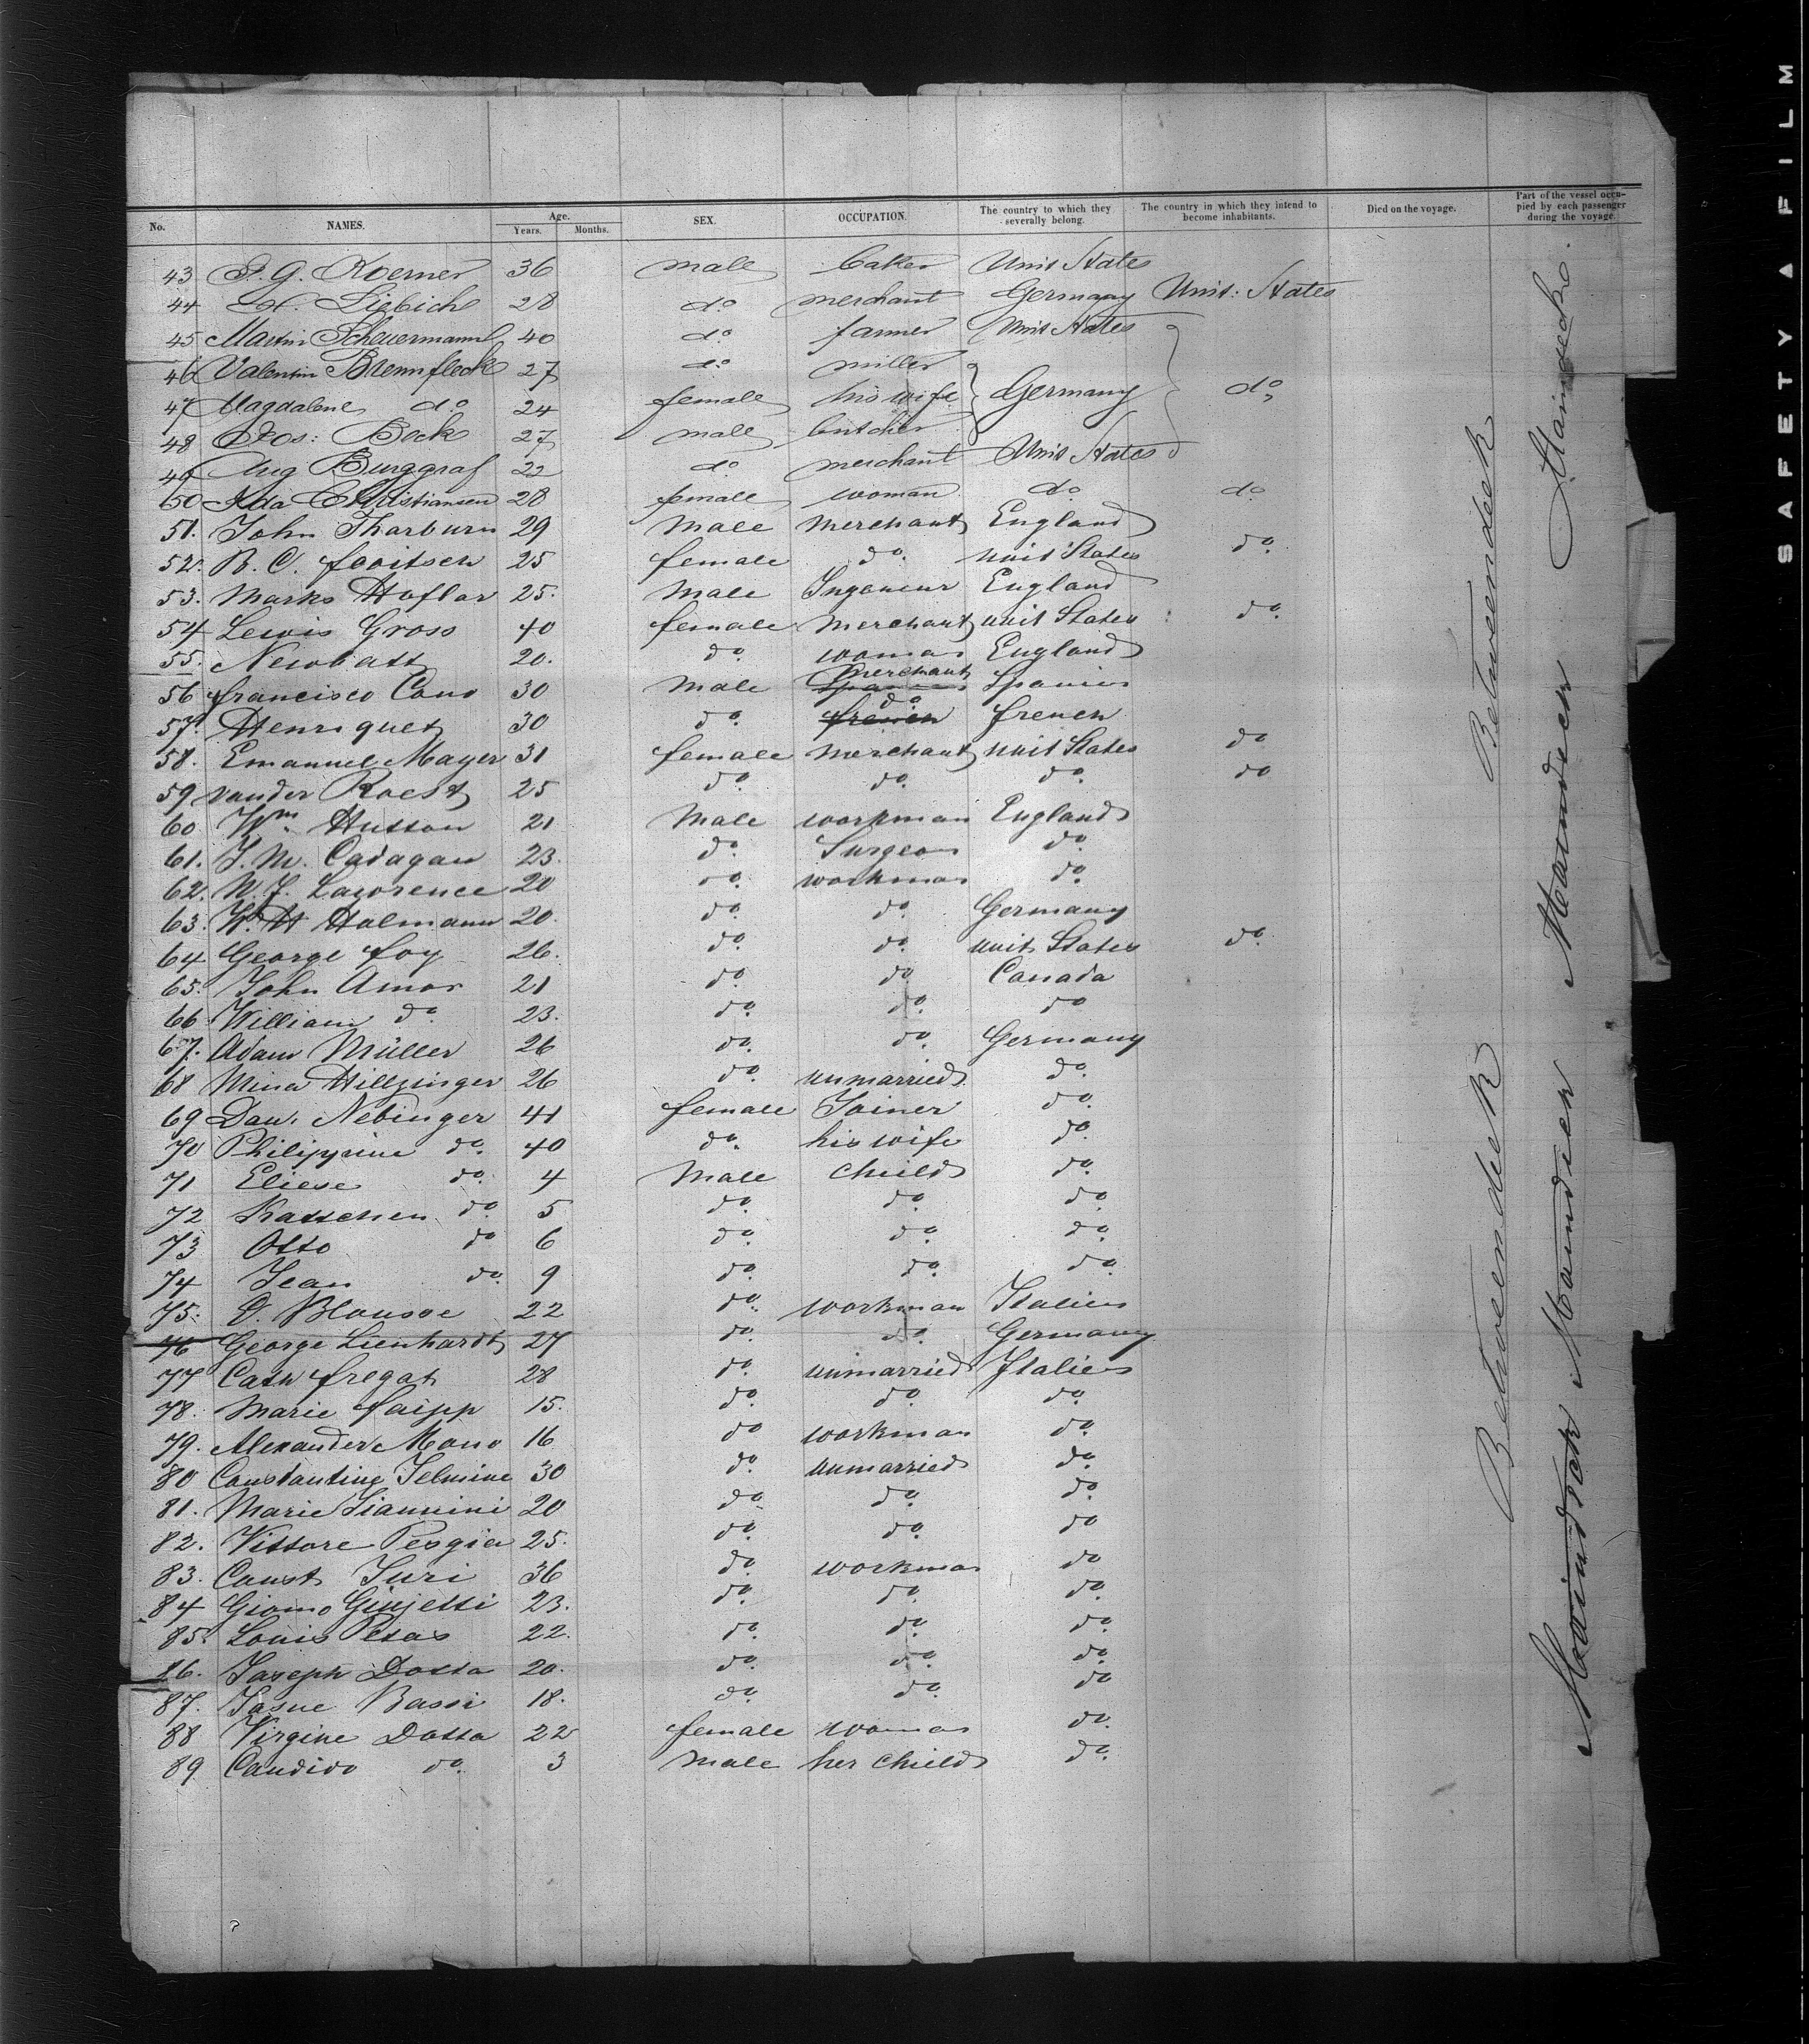 No. NAMES. Age. Years. Months. SEX. OCCUPATION. The country to which they severally belong. The country in which they intend to become inhabitants. Died on the voyage. Part of the vessel occupied by each passenger during the voyage.
43 G. Koerner 36 male baker Unit States
44 Liebich 28 do merchant Germany Unit: States
45 Martin Scheuermann 40 do farmer Unit States
46 Valentin Brennfleck 27 do miller
47 Magdalene do 24 female his wife Germany do
48 Jos: Beck 27 male butcher
49 Aug Burggraf 22 do merchant Unit States
50 Ida Christiansen 28 female woman do do
51. John Tharburn 29 Male Merchant England
52. R. C. 25 female do. unit States do.
53. Marks Hoflar 25. Male Ingeneur England
54 Lewis Gross 40 female Merchant unit States do.
55. Newbatt 20. do. woman England
56 francisco Cano 30 Male merchant Spanien
57. Henriquet 30 do. do french french
58. Emanuel Mayer 31 female merchant unit States do
59 vander Roest 25 do. do. do. do
60 Wm. Hutson 21 Male workman England
61. J. M. Cadagan 23. do. Surgeon do.
62. W. J. Lawrence 20 do. workman do.
63. W. H Halmann 20. do. do. Germany
64 George foy 26. do. do. unit States do.
65. John Amor 21 do. do Canada
66. William do. 23. do. do. do
67. Adam Müller 26 do. do. Germany
68 Mina Hillzinger 26 do. unmarried do.
69 Dan. Nebinger 41 female Joiner do.
70 Philippine do. 40 do. his wife do.
71 Eliese do. 4 Male Child do.
72 Kattchen do. 5 do. do. do.
73 Otto do 6 do. do. do.
74 Jean do. 9 do. do. do.
75. D. Blousoe 22 do. workman Italien
76 George Lienhardt 27 do. do. Germany
77 Cath fregat 28 do. unmarried Italien
78. Marie faipp 15. do. do. do.
79. Alexander Mono 16 do workman do.
80 Constantine Jelmine 30 do. unmarried do.
81. Marie Giannini 20 do. do. do.
82. Vittore Pesgia 25. do. do. do
83. Const Juri 36 do. workman do
84 Giomo Ginjetti 23. do. do. do.
85. Louis Petas 22. do. do. do.
86. Joseph Dotta 20. do. do. do.
87. Josue Bassi 18. do. do. do
88 Virgine Dotta 22 female woman do.
89 Candido do. 3 Male her Child do.
Betweendeck
Betweendeck